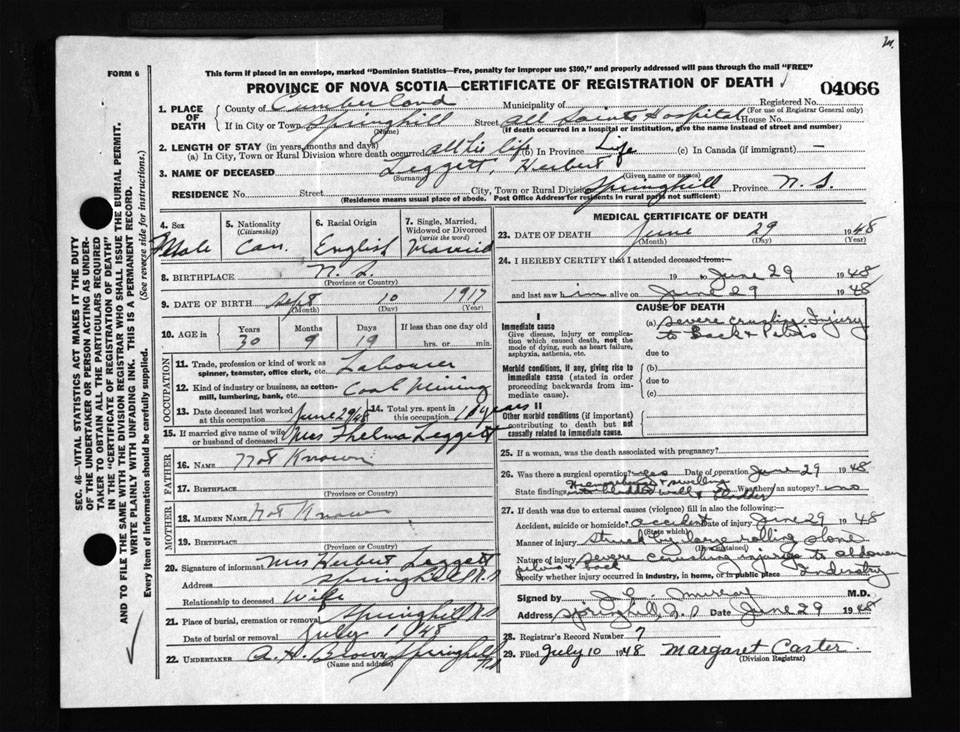 FORM 6
This form if placed in an envelope, marked "Dominion Statistics—Free, penalty for improper use $300," and properly addressed will pass through the mail "FREE"
PROVINCE OF NOVA SCOTIA—CERTIFICATE OF REGISTRATION OF DEATH
04066
1. PLACE OF DEATH
County of Cumberland Municipality of Registered No.
(For use of Registrar General only)
If in City or Town Springhill Street All Saints Hospital House No.
(Name) (If death occurred in a hospital or institution, give the name instead of street and number)
2. LENGTH OF STAY (in years, months and days)
(a) In City, Town or Rural Division where death occurred all his life (b) In Province Life (c) In Canada (if immigrant) —
3. NAME OF DECEASED Leggett, Herbert
(Surname) (Given name or names)
RESIDENCE No. Street City, Town or Rural Division Springhill Province N. S.
(Residence means usual place of abode. Post Office Address for residents in rural parts not sufficient)
4. Sex Male
5. Nationality (Citizenship) Can.
6. Racial Origin English
7. Single, Married, Widowed or Divorced (write the word) Married
8. BIRTHPLACE N. S.
(Province or Country)
9. DATE OF BIRTH Sept 10 1917
(Month) (Day) (Year)
10. AGE in Years Months Days If less than one day old
30 9 19 hrs. or min.
OCCUPATION
11. Trade, profession or kind of work as spinner, teamster, office clerk, etc. Labourer
12. Kind of industry or business, as cotton-mill, lumbering, bank, etc. Coal Mining
13. Date deceased last worked at this occupation June 29/48
14. Total yrs. spent in this occupation 10 years
15. If married give name of wife or husband of deceased Mrs Thelma Leggett
FATHER
16. NAME Not Known
17. BIRTHPLACE
(Province or Country)
MOTHER
18. MAIDEN NAME Not Known
19. BIRTHPLACE
(Province or Country)
20. Signature of informant Mrs Herbert Leggett
Address Springhill N.S
Relationship to deceased Wife
21. Place of burial, cremation or removal Springhill N.S
Date of burial or removal July 1 1948
22. UNDERTAKER A. H. Brown Springhill N.S
(Name and address)
MEDICAL CERTIFICATE OF DEATH
23. DATE OF DEATH June 29 1948
(Month) (Day) (Year)
24. I HEREBY CERTIFY that I attended deceased from:
19 to June 29 1948
and last saw him alive on June 29 1948
CAUSE OF DEATH
I
Immediate cause
Give disease, injury or complication which caused death, not the mode of dying, such as heart failure, asphyxia, asthenia, etc.
(a) Severe crushing Injury
to Back & Pelvis
due to
Morbid conditions, if any, giving rise to immediate cause (stated in order proceeding backwards from immediate).
(b)
due to
(c)
II
Other morbid conditions (if important) contributing to death but not causally related to immediate cause.
25. If a woman, was the death associated with pregnancy?
26. Was there a surgical operation? yes Date of operation June 29 1948
Hemorrhage & swelling
State findings into bladder wall & bladder Was there an autopsy? no
27. If death was due to external causes (violence) fill in also the following:
Accident, suicide or homicide? accident Date of injury June 29 1948
(State which)
Manner of injury Struck by large rolling stone
(How sustained)
Nature of injury Severe crushing injuries to abdomen
pelvis & back
Specify whether injury occurred in industry, in home, or in public place Industry
Signed by Murray M.D.
Address Springhill, N.S Date June 29 1948
28. Registrar's Record Number 7
29. Filed July 10 1948 Margaret Carter.
(Division Registrar)
SEC. 46—VITAL STATISTICS ACT MAKES IT THE DUTY
OF THE UNDERTAKER OR PERSON ACTING AS UNDER-
TAKER TO OBTAIN ALL THE PARTICULARS REQUIRED
IN THE "CERTIFICATE OF REGISTRATION OF DEATH"
AND TO FILE THE SAME WITH THE DIVISION REGISTRAR WHO SHALL ISSUE THE BURIAL PERMIT.
WRITE PLAINLY WITH UNFADING INK. THIS IS A PERMANENT RECORD.
Every item of information should be carefully supplied. (See reverse side for instructions.)